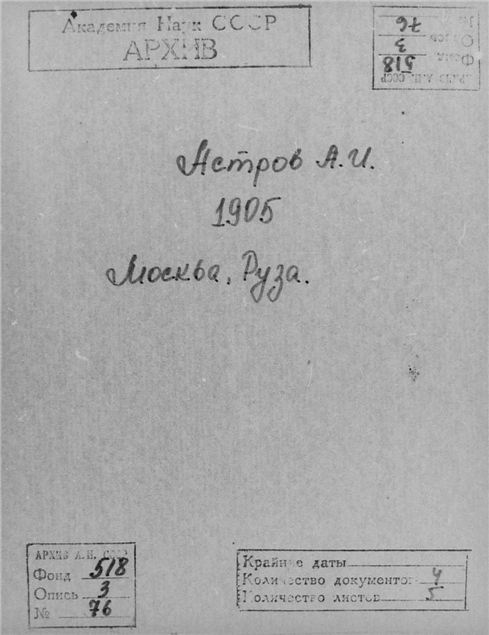 Академия Наук СССР
АРХИВ
АРХИВ А.Н. СССР
Фонд 518
Опись 3
№ 76
Астров А.И.
1905
Москва, Руза.
АРХИВ А.Н. СССР
Фонд 518
Опись 3
№ 76
Крайние даты
Количество документов 4
Количество листов 5